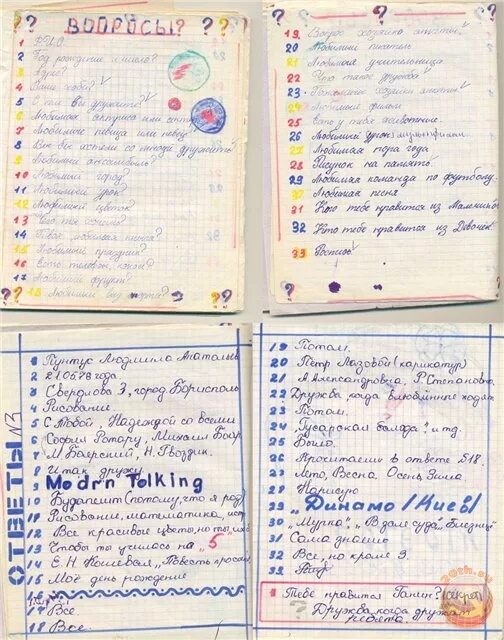 ? ВОПРОСЫ? ?
1 Ф.И.О
2 Год рождения и число?
3 Адрес?
4 Ваше хобби?
5 С кем Вы дружите?
6 Любимая актриса или актёр
7 Любимые певица или певец
8 Вы бы хотели со мной дружить?
9 Любимый ансамбль?
10 Любимый город?
11 Любимый урок?
12 Любимый цветок
13
14 Твоя любимая книга?
15 Любимый праздник?
16 Есть телефон, какой?
17 Любимый фрукт?
18 Любимый вид спорта?
? ?
19. Возраст хозяйки анкеты?
20 Любимый писатель
21 Любимая учительница
22 Что такое дружба
23 хозяйки анкеты?
24 Любимый фильм
25 Есть у тебя животные.
26 Любимый мультфильм.
27 Любимая пора года
28 Рисунок на память
29 Любимая команда по футболу.
30 Любимая песня
31 Кто тебе нравится из Мальчиков
32 Кто тебе нравится из Девочек
33 Роспись
ОТВЕТЫ №3
1 Людмила
2 210578 года
3 Свердлова 3, город Борисполь
4 Рисование.
5 С Тобой, Надеждой со всеми
6 София Ротару, Михаил Бояр
7 М. Боярский, Н. Гвоздик.
8 И так дружу.
9 Modrn Tolking
10 Будапешт (потому, что я род)
11 Рисование, математика, ист
12 Все красивые цветы, но
13 Чтобы ты училась на „5"
14 Е. Н Кошевая, „Повесть о
15 Моё день рождение
16
17 Все
18 Все.
19 Потом.
20 Пётр Лазовой (карикатур)
21 А. Александровна, Р. Степановна
22 Дружба, когда влюблённые ходят
23 Потом.
24 „Гусарская балада" итд.
25 Было.
26 Прочитаеш в ответе §18.
27 Лето, Весна. Осень, Зима
28 Нарисую
29 „Динамо/Киев/
30 „Мурка", „В зале суда", „Близнецы
31 Сама знаешь
32 Все, но кроме Э.
33
Тебе нравится (секрет)
? Дружба, когда дружат
20th.su